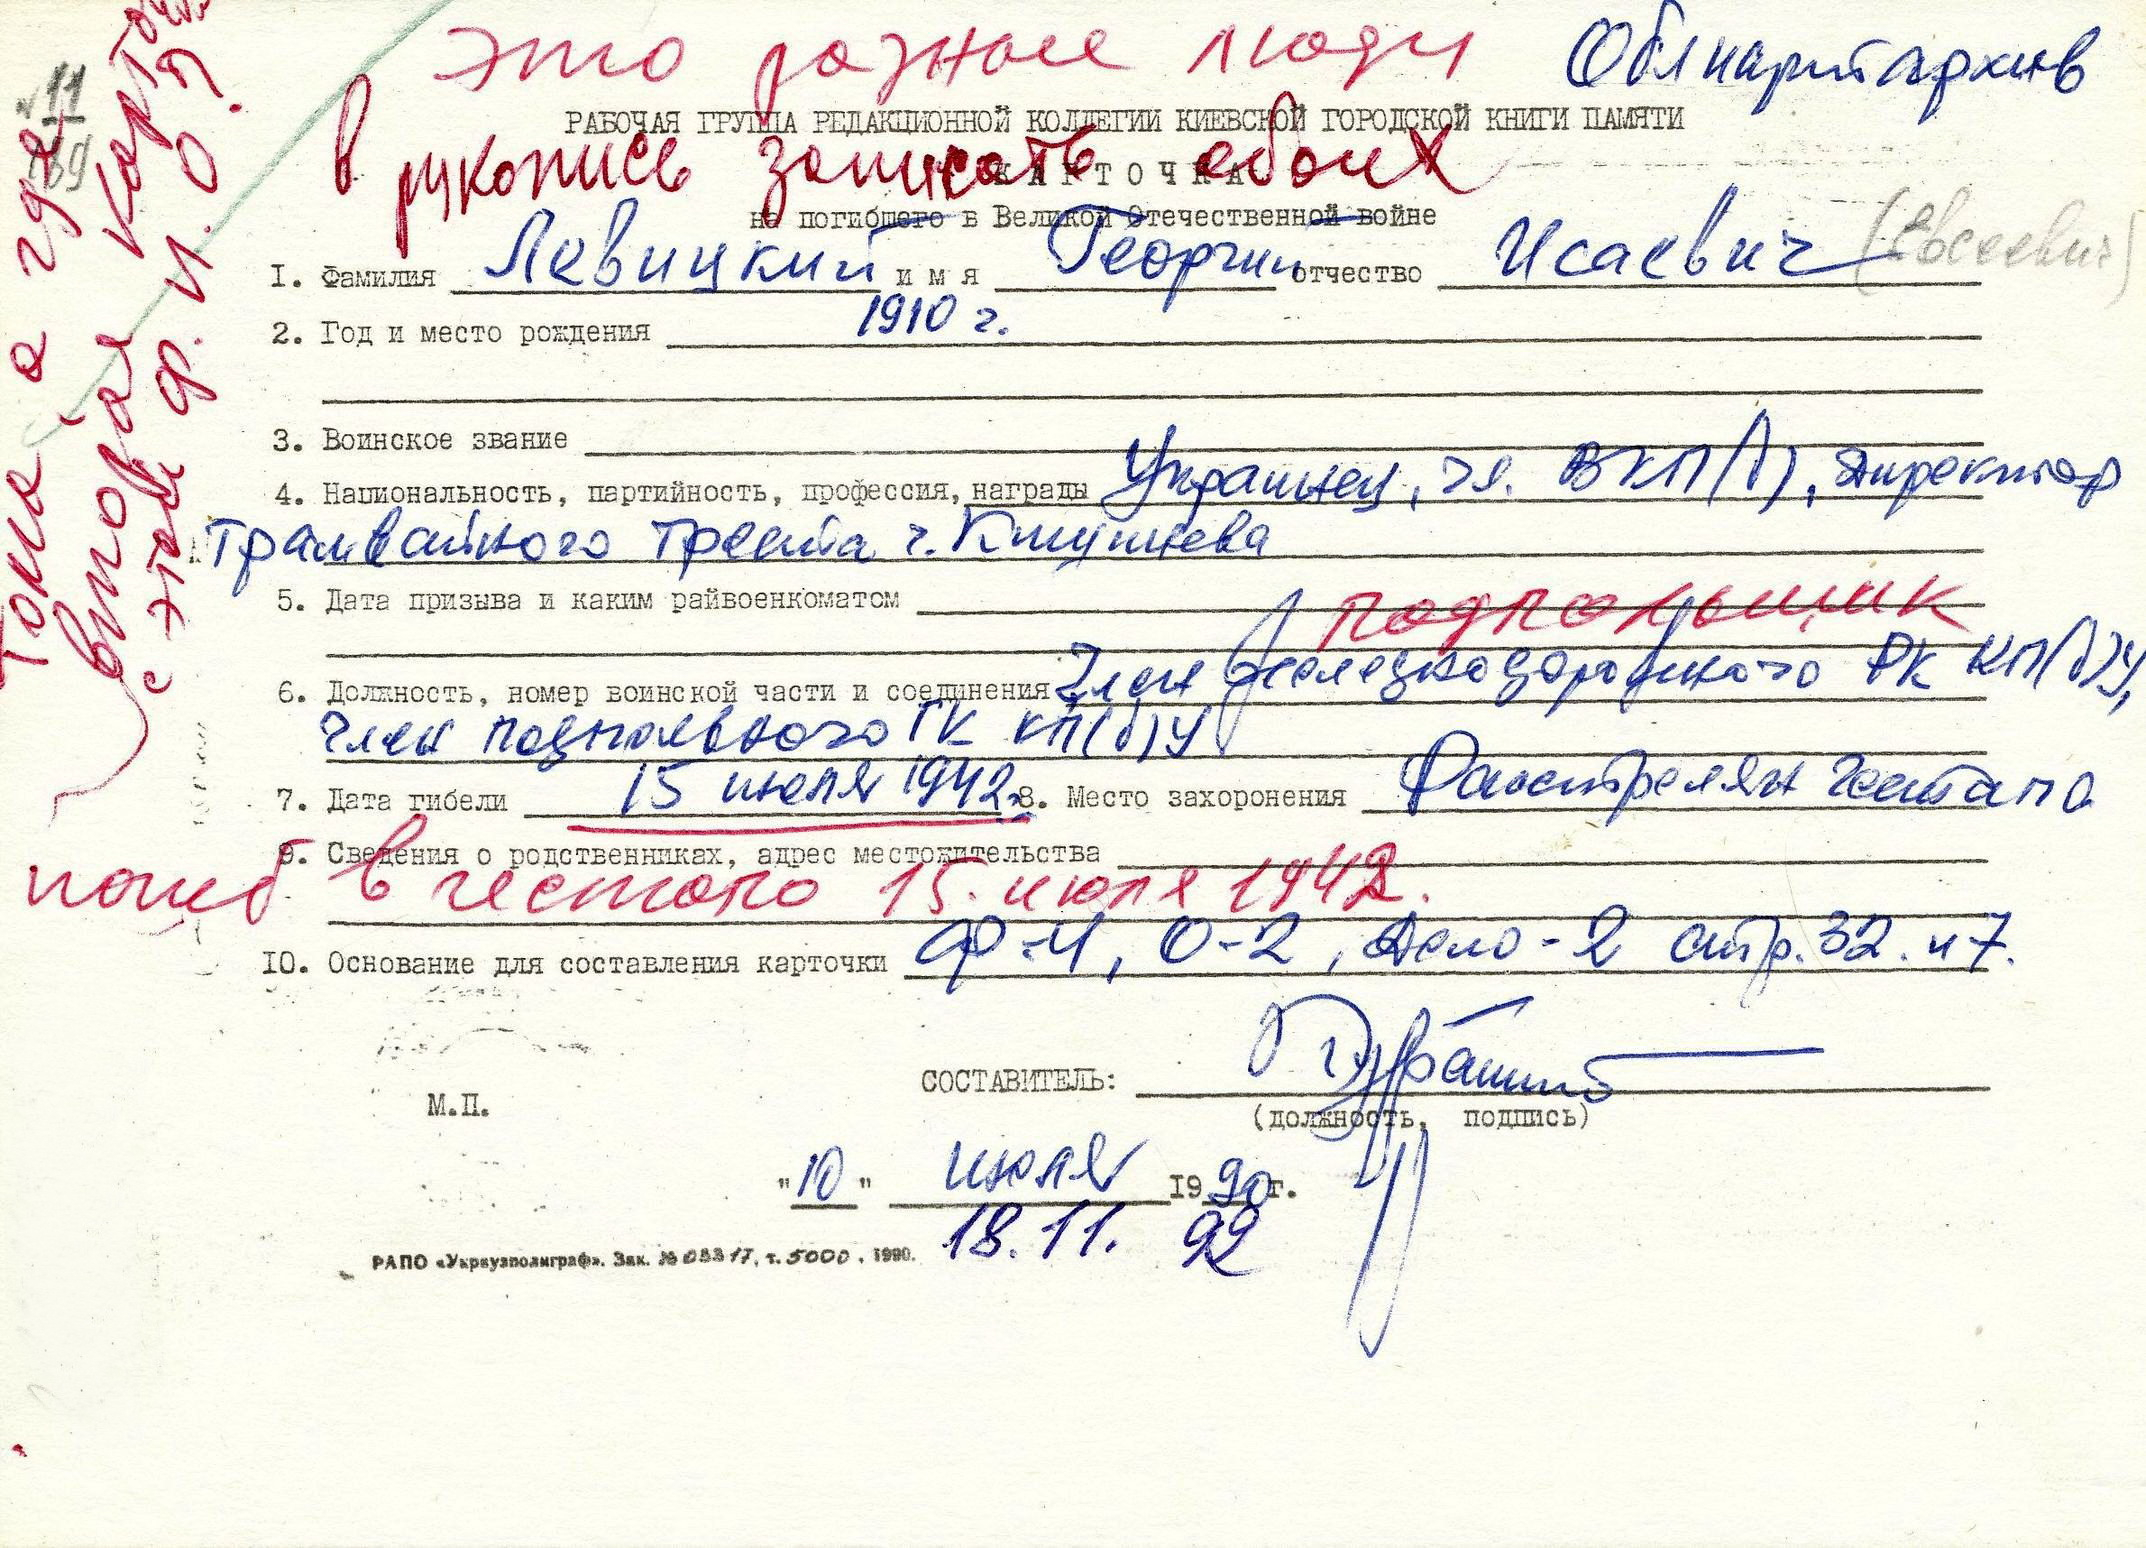 это разные люди
Облпартархив
РАБОЧАЯ ГРУППА РЕДАКЦИОННОЙ КОЛЛЕГИИ КИЕВСКОЙ ГОРОДСКОЙ КНИГИ ПАМЯТИ
в рукопись записать обоих
КАРТОЧКА
на погибшего в Великой Отечественной войне
I. Фамилия Левицкий имя Георгий отчество Исаевич (Евсеевич)
2. Год и место рождения 1910 г.
3. Воинское звание
4. Национальность, партийность, профессия, награды Украинец, чл. ВКП(б), директор
трамвайного треста г. Кишинева
5. Дата призыва и каким райвоенкоматом
подпольщик
6. Должность, номер воинской части и соединения Член железнодорожного РК КП(б)У,
член подпольного ГК КП(б)У
7. Дата гибели 15 июля 1942 г. 8. Место захоронения Расстрелян гестапо
9. Сведения о родственниках, адрес местожительства
погиб в гестапо 15 июля 1942.
IO. Основание для составления карточки Ф-4, О-2, Дело-2 стр. 32 и 7.
СОСТАВИТЕЛЬ:
(должность, подпись)
М.П.
"10" июля I990г.
18.11. 92
РАПО «Укрвузполиграф». Зак. № 03317, т. 5000. 1990.
11
вторая карточка
с этой ф. и. о.